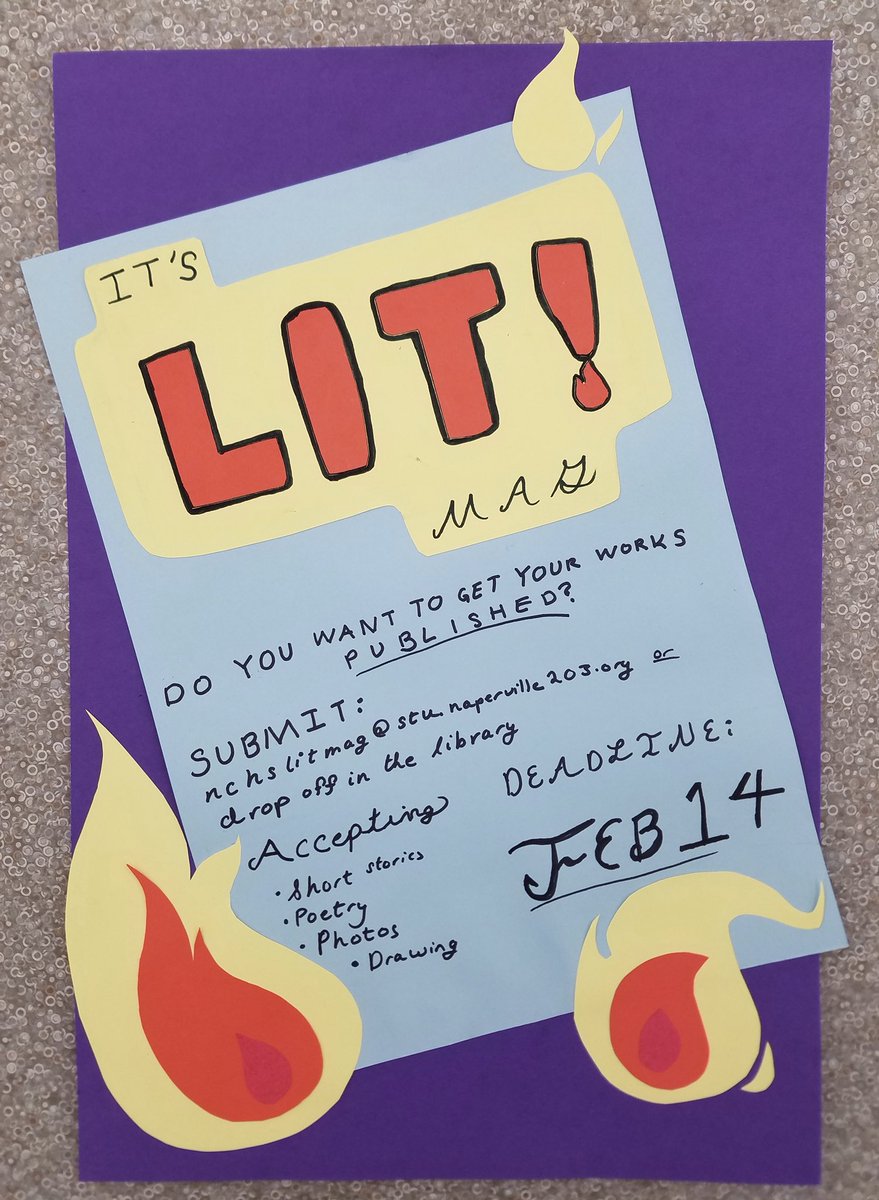 IT'S
LIT!
MAG
DO YOU WANT TO GET YOUR WORKS
PUBLISHED?
SUBMIT:
nchslitmag@stu.naperville203.org or
drop off in the library
DEADLINE:
FEB 14
Accepting
• Short stories
• Poetry
• Photos
• Drawing